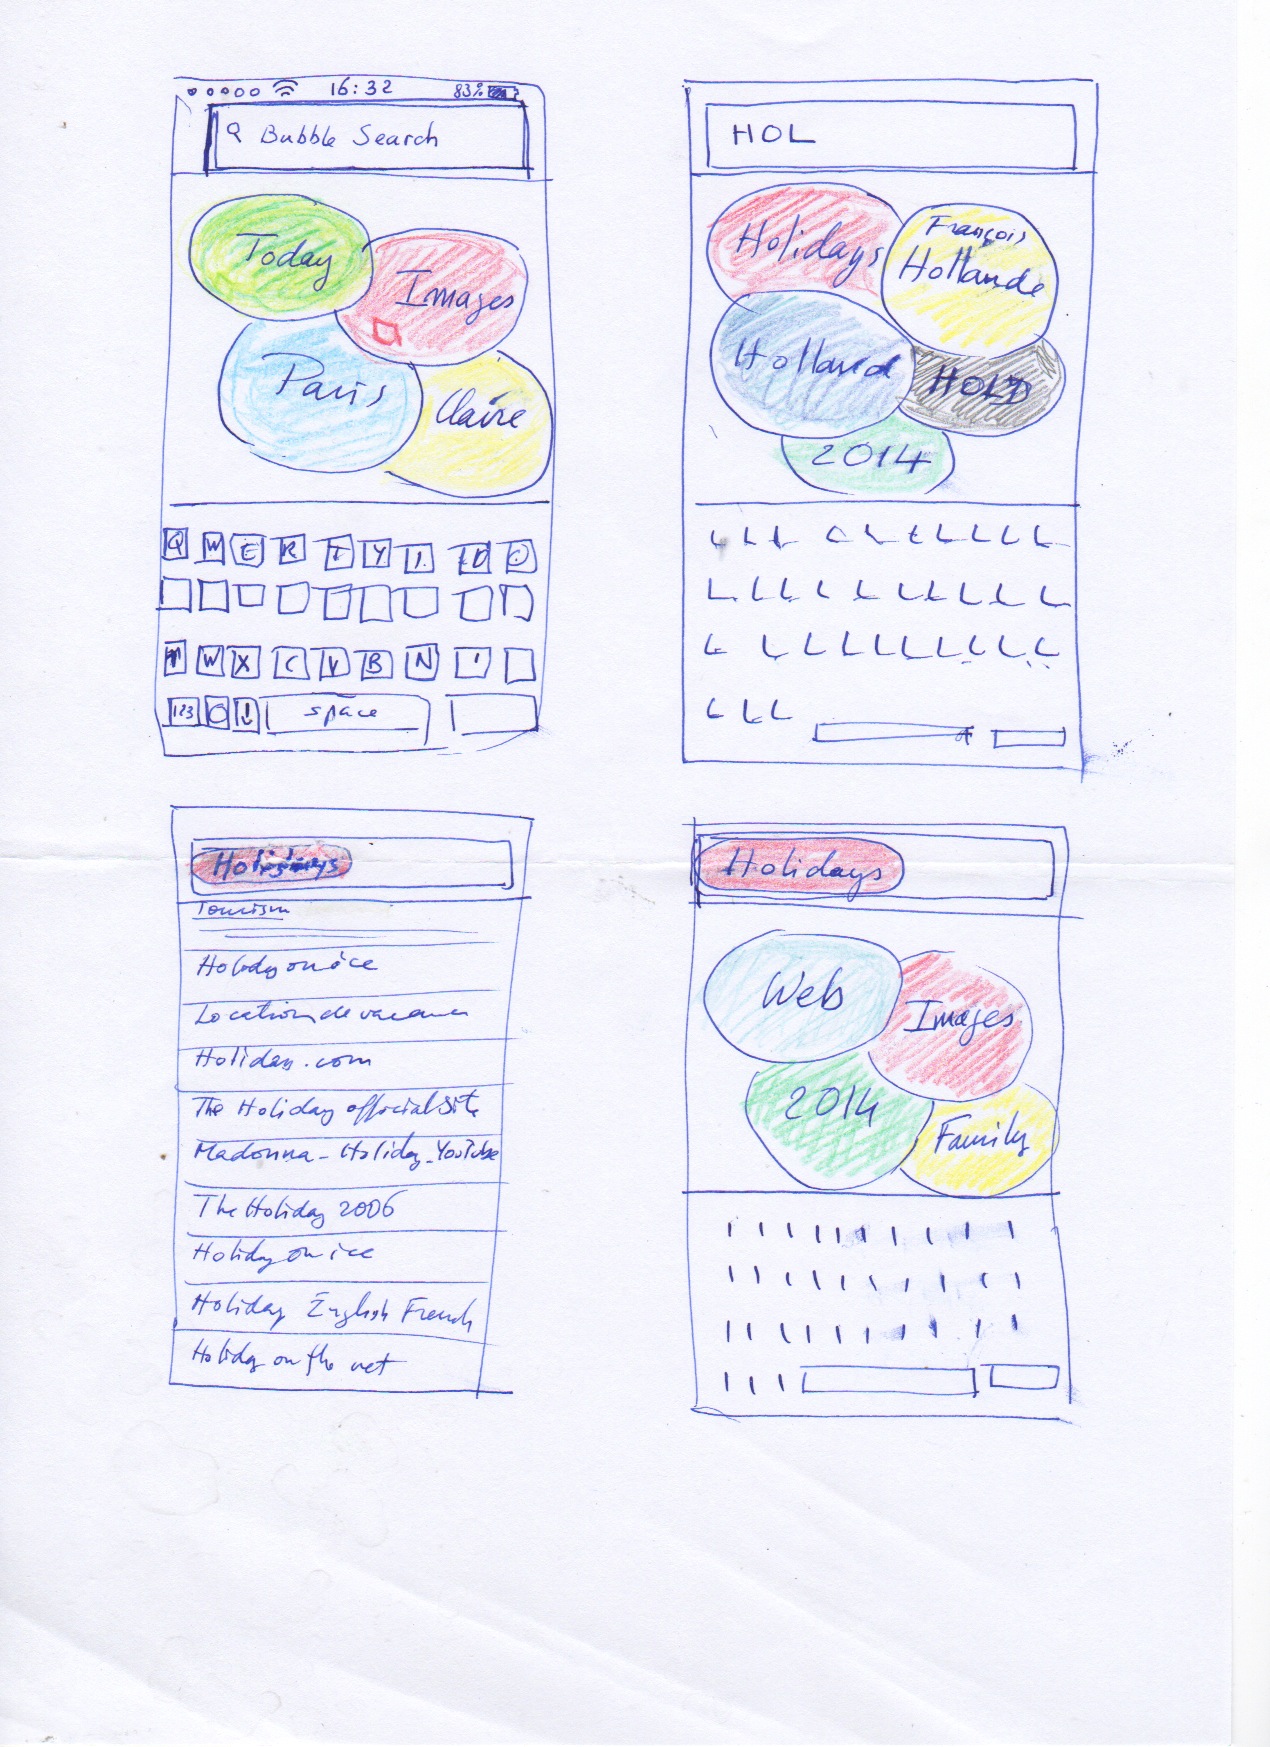 16:32 83%
Bubble Search
Today
Images
Paris
Claire
Q W E R T Y
W X C V B N '
123 space
HOL
Holidays
François
Hollande
Holland
HOLD
2014
Holidays
Tourism
Holiday on ice
Location de vacances
Holiday.com
The Holiday official site
Madonna - Holiday - YouTube
The Holiday 2006
Holiday on ice
Holiday English French
Holiday on the net
Holidays
Web
Images
2014
Family